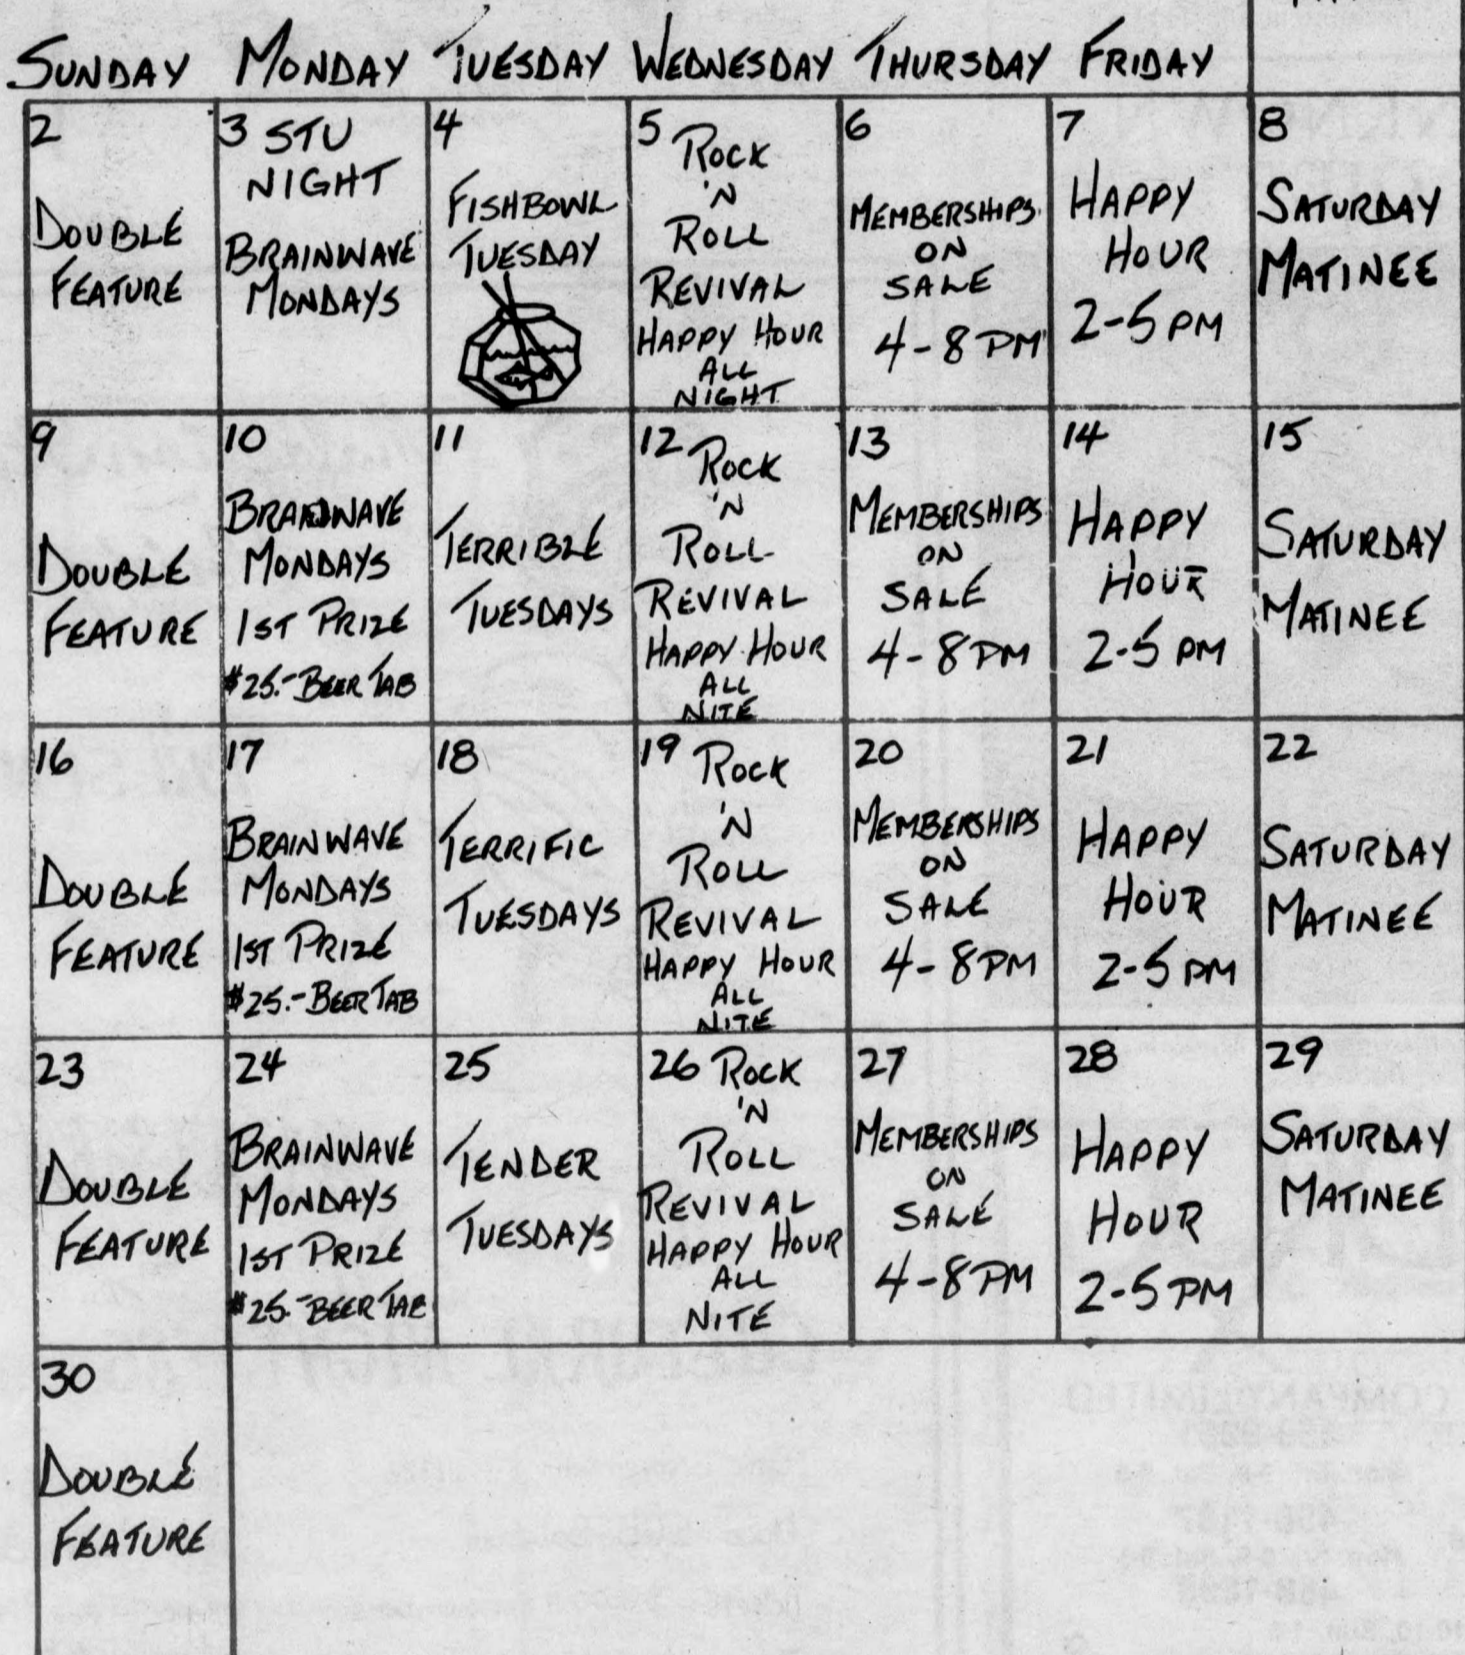 SUNDAY MONDAY TUESDAY WEDNESDAY THURSDAY FRIDAY
2
DOUBLE
FEATURE
3 STU
NIGHT
BRAINWAVE
MONDAYS
4
FISHBOWL
TUESDAY
5 ROCK
'N
ROLL
REVIVAL
HAPPY HOUR
ALL
NIGHT
6
MEMBERSHIPS
ON
SALE
4-8 PM
7
HAPPY
HOUR
2-5 PM
8
SATURDAY
MATINEE
9
DOUBLE
FEATURE
10
BRAINWAVE
MONDAYS
1ST PRIZE
$25.- BEER TAB
11
TERRIBLE
TUESDAYS
12 ROCK
'N
ROLL
REVIVAL
HAPPY HOUR
ALL
NITE
13
MEMBERSHIPS
ON
SALE
4-8 PM
14
HAPPY
HOUR
2-5 PM
15
SATURDAY
MATINEE
16
DOUBLE
FEATURE
17
BRAINWAVE
MONDAYS
1ST PRIZE
$25.- BEER TAB
18
TERRIFIC
TUESDAYS
19 ROCK
'N
ROLL
REVIVAL
HAPPY HOUR
ALL
NITE
20
MEMBERSHIPS
ON
SALE
4-8 PM
21
HAPPY
HOUR
2-5 PM
22
SATURDAY
MATINEE
23
DOUBLE
FEATURE
24
BRAINWAVE
MONDAYS
1ST PRIZE
$25.- BEER TAB
25
TENDER
TUESDAYS
26 ROCK
'N
ROLL
REVIVAL
HAPPY HOUR
ALL
NITE
27
MEMBERSHIPS
ON
SALE
4-8 PM
28
HAPPY
HOUR
2-5 PM
29
SATURDAY
MATINEE
30
DOUBLE
FEATURE